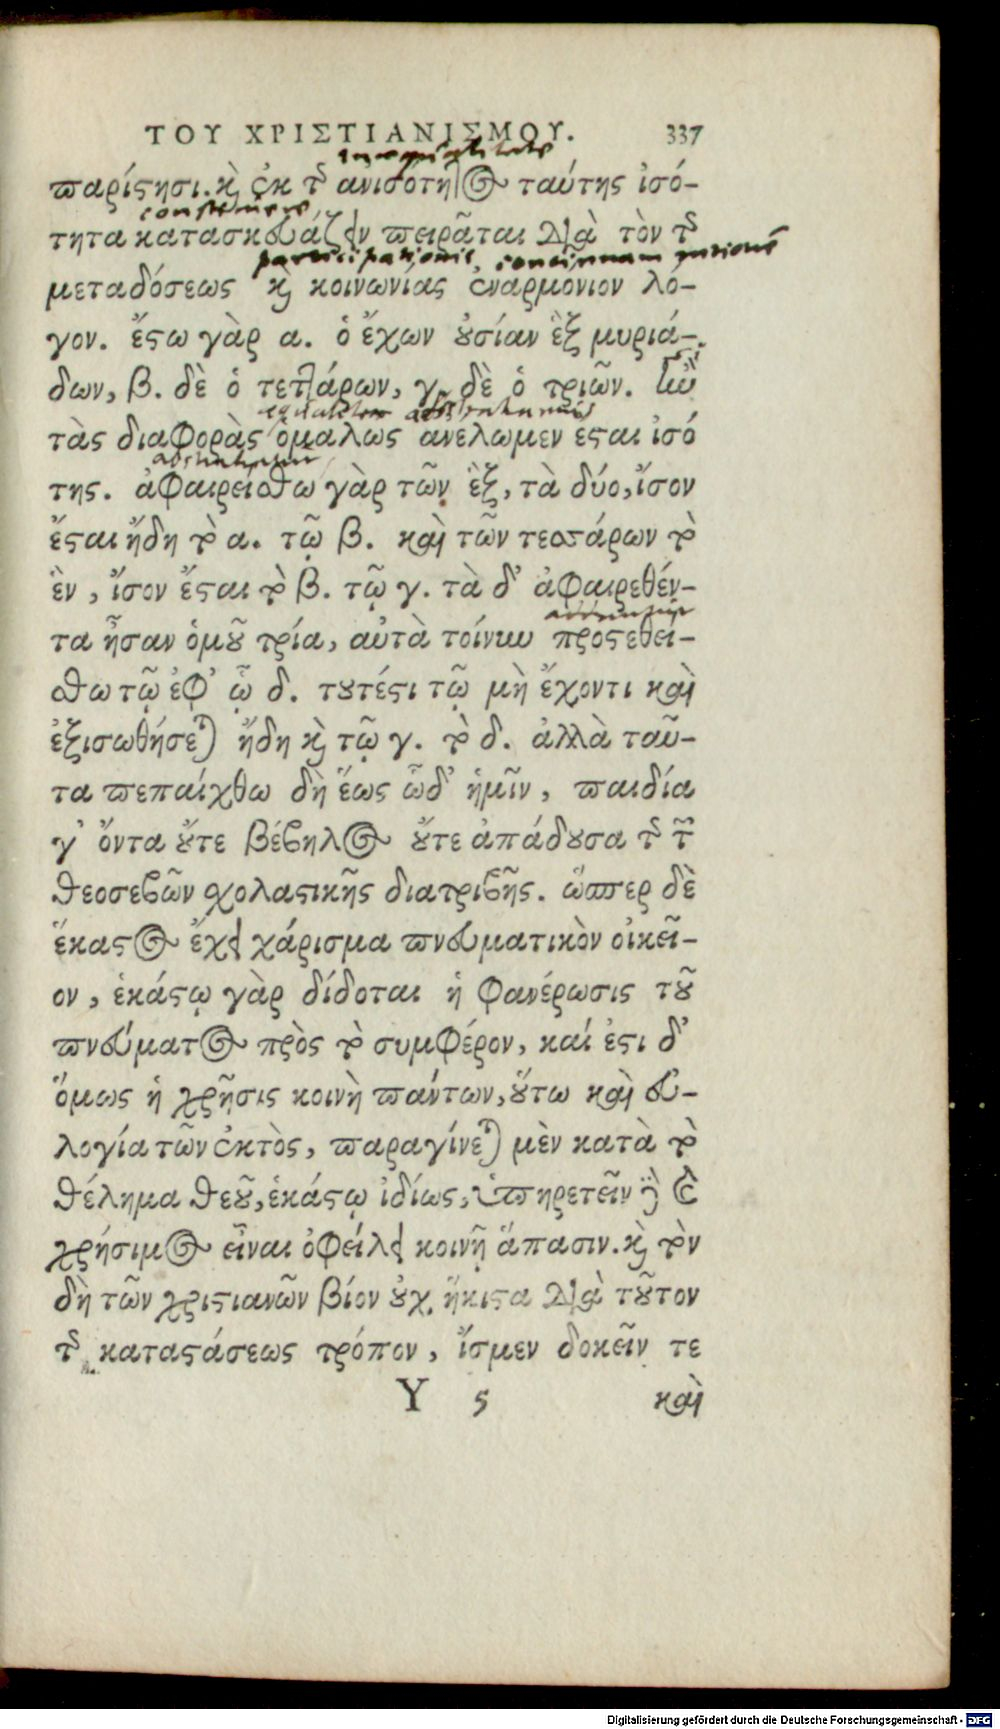 ΤΟΥ ΧΡΙΣΤΙΑΝΙΣΜΟΥ. 337
inaequalitate
παρίστησι. καὶ ἐκ τῆς ἀνισότητος ταύτης ἰσό-
construere
τητα κατασκευάζειν πειρᾶται διὰ τὸν τῆς
participationis concinnam rationem
μεταδόσεως καὶ κοινωνίας ἐναρμόνιον λό-
γον. ἔστω γὰρ α. ὁ ἔχων οὐσίαν ἓξ μυριά-
δων, β. δὲ ὁ τεττάρων, γ. δὲ ὁ τριῶν.
τὰς διαφορὰς ὁμαλῶς ἀνέλωμεν ἔσται ἰσό
της. ἀφαιρείσθω γὰρ τῶν ἓξ, τὰ δύο, ἴσον
ἔσται ἤδη τὸ α. τῷ β. καὶ τῶν τεσσάρων τὸ
ἓν, ἴσον ἔσται τὸ β. τῷ γ. τὰ δ' ἀφαιρεθέν-
τα ἦσαν ὁμοῦ τρία, αὐτὰ τοίνυν προστεθεί-
σθω τῷ ἐφ' ᾧ δ. τουτέστι τῷ μὴ ἔχοντι καὶ
ἐξισωθήσεται ἤδη καὶ τῷ γ. τὸ δ. ἀλλὰ ταῦ-
τα πεπαίχθω δὴ ἕως ὧδ' ἡμῖν, παιδία
γ' ὄντα οὔτε βέβηλος οὔτε ἀπάδουσα τῆς τῶν
θεοσεβῶν σχολαστικῆς διατριβῆς. ὥσπερ δὲ
ἕκαστος ἔχει χάρισμα πνευματικὸν οἰκεῖ-
ον, ἑκάστῳ γὰρ δίδοται ἡ φανέρωσις τοῦ
πνεύματος πρὸς τὸ συμφέρον, καί ἐστι δ'
ὅμως ἡ χρῆσις κοινὴ πάντων, οὕτω καὶ εὐ-
λογία τῶν ἐκτὸς, παραγίνεται μὲν κατὰ τὸ
θέλημα θεοῦ, ἑκάστῳ ἰδίως, ὑπηρετεῖν
χρήσιμος εἶναι ὀφείλει κοινῇ ἅπασιν. καὶ τὸν
δὴ τῶν χριστιανῶν βίον οὐχ ἥκιστα διὰ τοῦτον
τῆς καταστάσεως τρόπον, ἴσμεν δοκεῖν τε
Y 5 καὶ
Digitalisierung gefördert durch die Deutsche Forschungsgemeinschaft - DFG